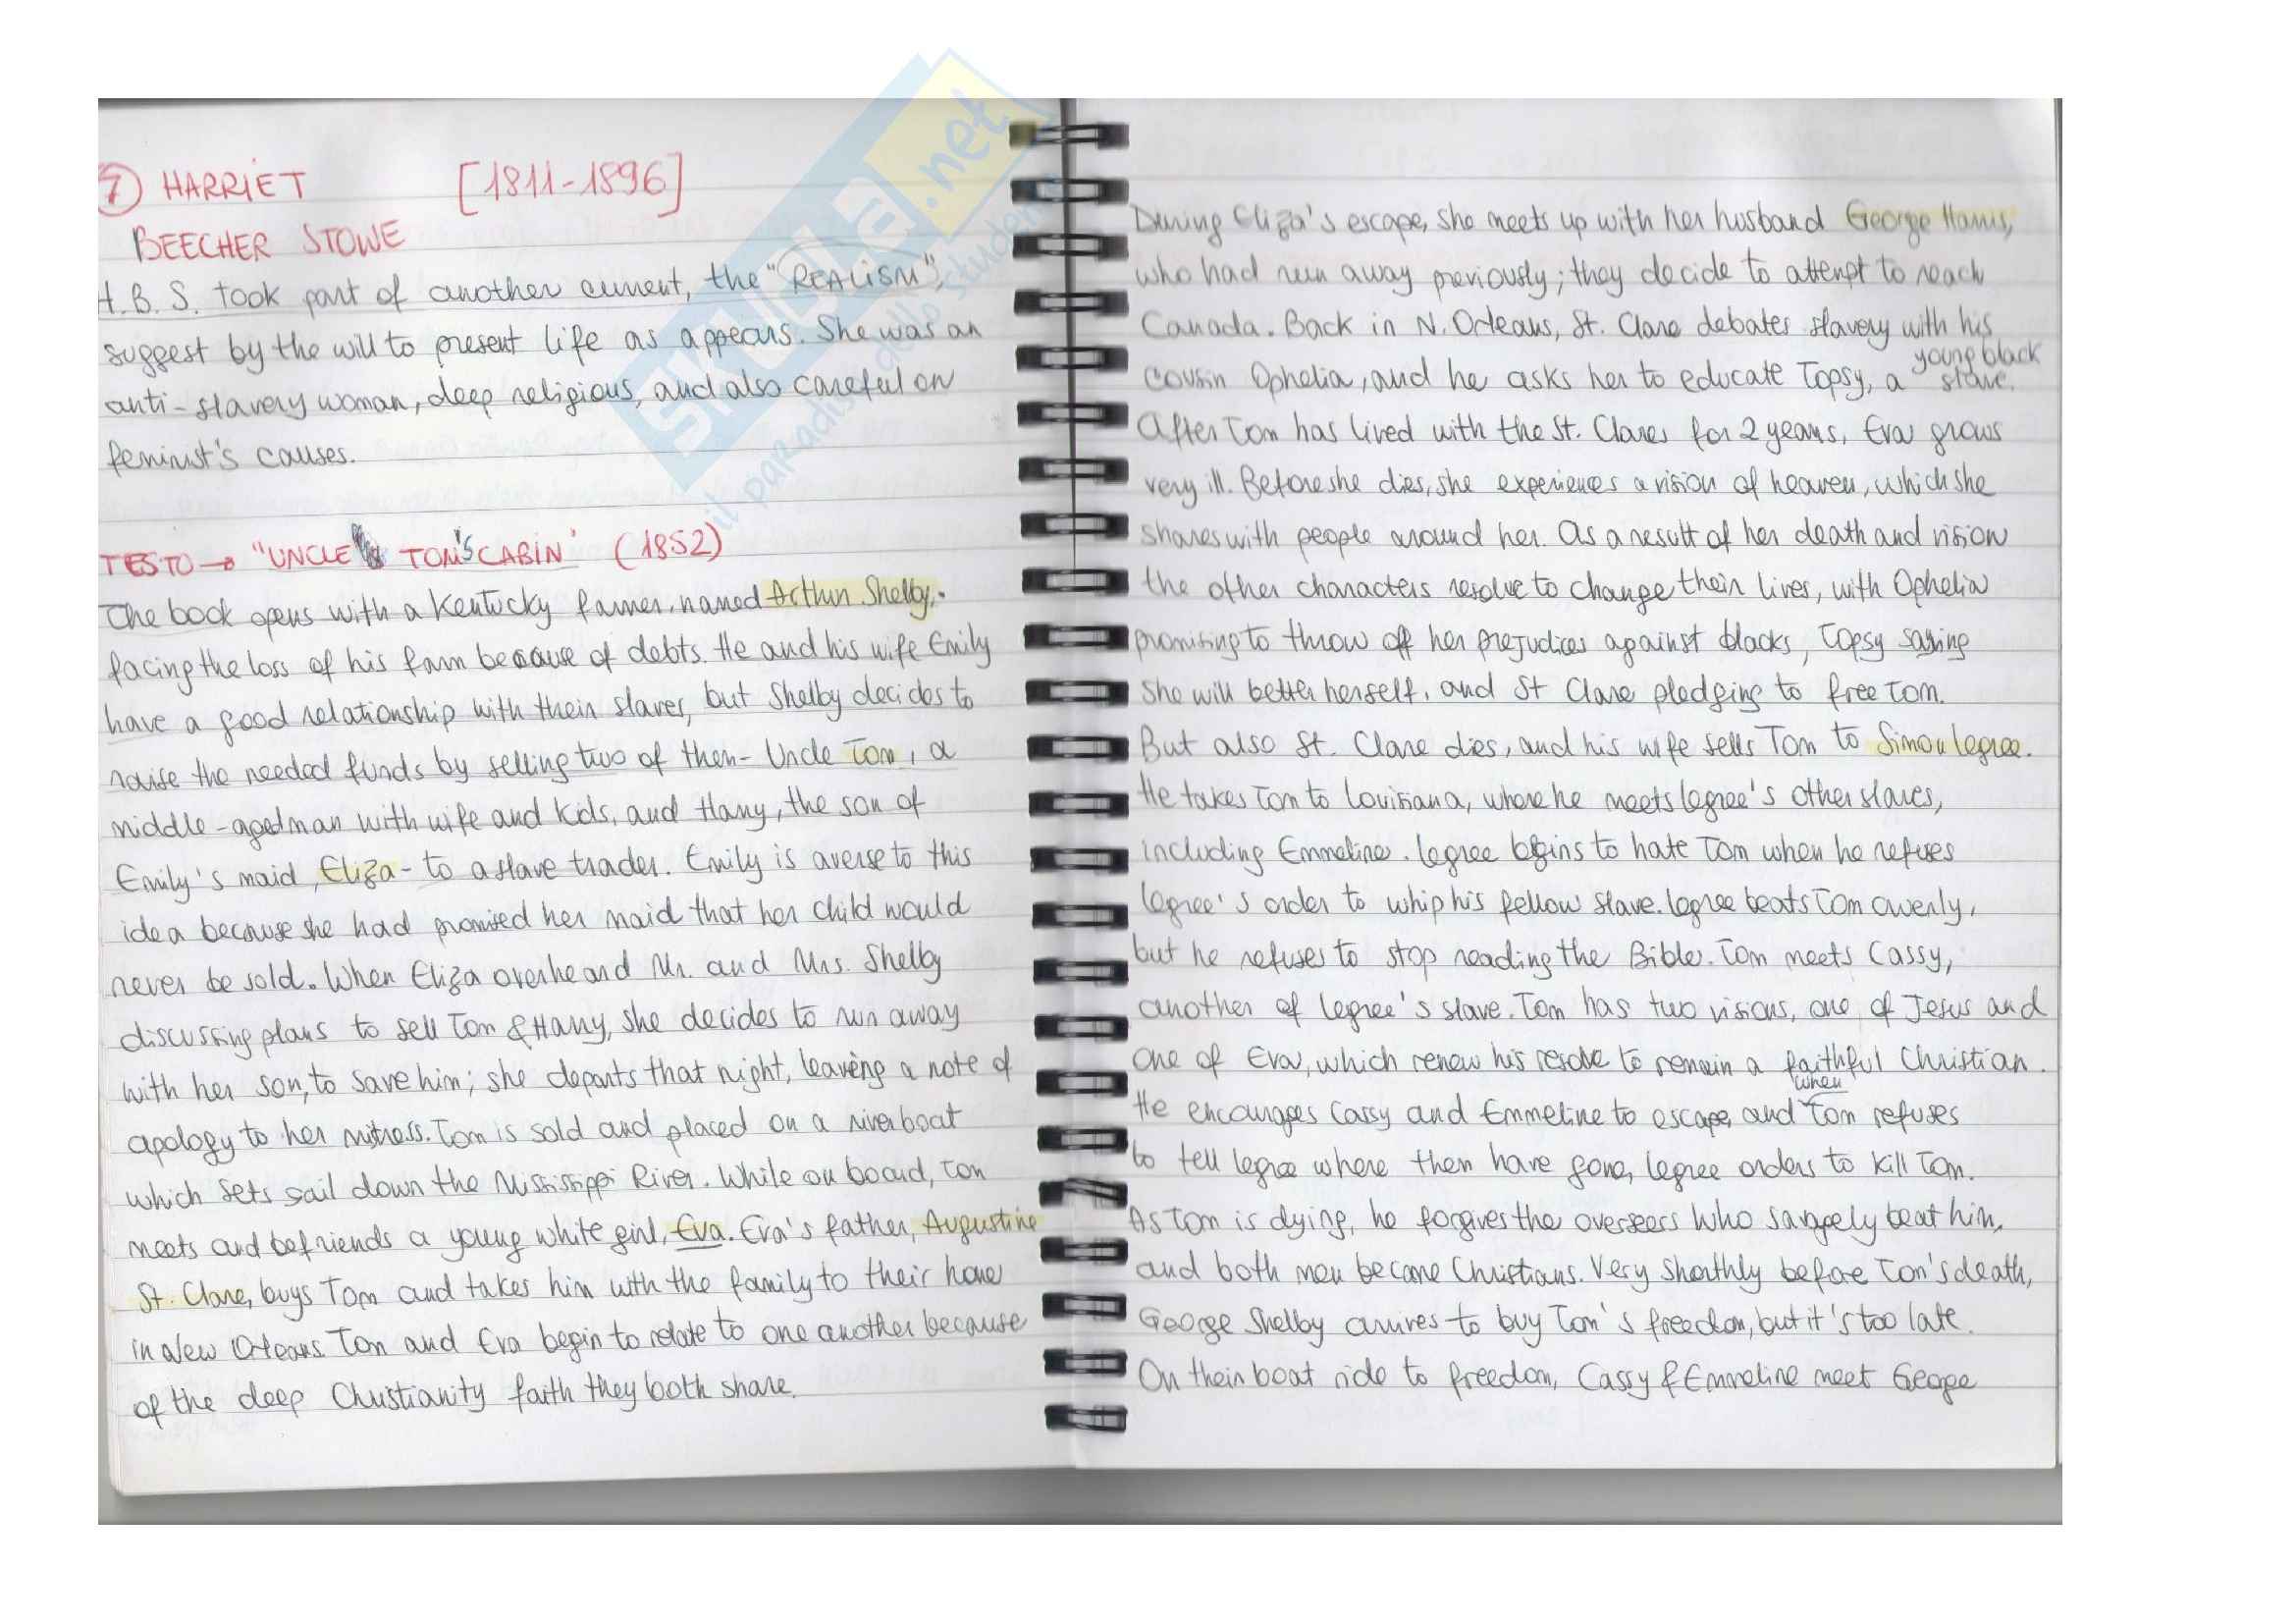 7 HARRIET [1811-1896]
BEECHER STOWE
H.B.S. took part of another current, the "REALISM",
suggest by the will to present life as appears. She was an
anti-slavery woman, deep religious, and also careful on
feminist's causes.
TESTO → "UNCLE TOM'S CABIN" (1852)
The book opens with a Kentucky farmer, named Arthur Shelby,
facing the loss of his farm because of debts. He and his wife Emily
have a good relationship with their slaves, but Shelby decides to
raise the needed funds by selling two of them - Uncle Tom, a
middle-aged man with wife and kids, and Harry, the son of
Emily's maid, Eliza - to a slave trader. Emily is averse to this
idea because she had promised her maid that her child would
never be sold. When Eliza overheard Mr. and Mrs. Shelby
discussing plans to sell Tom & Harry, she decides to run away
with her son, to save him; she departs that night, leaving a note of
apology to her mistress. Tom is sold and placed on a riverboat
which sets sail down the Mississippi River. While on board, Tom
meets and befriends a young white girl, Eva. Eva's father, Augustine
St. Clare, buys Tom and takes him with the family to their home
in New Orleans. Tom and Eva begin to relate to one another because
of the deep Christianity faith they both share.
During Eliza's escape, she meets up with her husband George Harris,
who had run away previously; they decide to attempt to reach
Canada. Back in N. Orleans, St. Clare debates slavery with his
cousin Ophelia, and he asks her to educate Topsy, a young black slave.
After Tom has lived with the St. Clares for 2 years, Eva grows
very ill. Before she dies, she experiences a vision of heaven, which she
shares with people around her. As a result of her death and vision
the other characters resolve to change their lives, with Ophelia
promising to throw off her prejudices against blacks, Topsy saying
she will better herself, and St Clare pledging to free Tom.
But also St. Clare dies, and his wife sells Tom to Simon Legree.
He takes Tom to Louisiana, where he meets Legree's other slaves,
including Emmeline. Legree begins to hate Tom when he refuses
Legree's order to whip his fellow slave. Legree beats Tom
but he refuses to stop reading the Bible. Tom meets Cassy,
another of Legree's slave. Tom has two visions, one of Jesus and
one of Eva, which renew his resolve to remain a faithful Christian.
He encourages Cassy and Emmeline to escape, and when Tom refuses
to tell Legree where them have gone, Legree orders to kill Tom.
As Tom is dying, he forgives the overseers who savagely beat him,
and both men become Christians. Very shorthly before Tom's death,
George Shelby arrives to buy Tom's freedom, but it's too late.
On their boat ride to freedom, Cassy & Emmeline meet George
SKUOLA.net
il paradiso dello studente